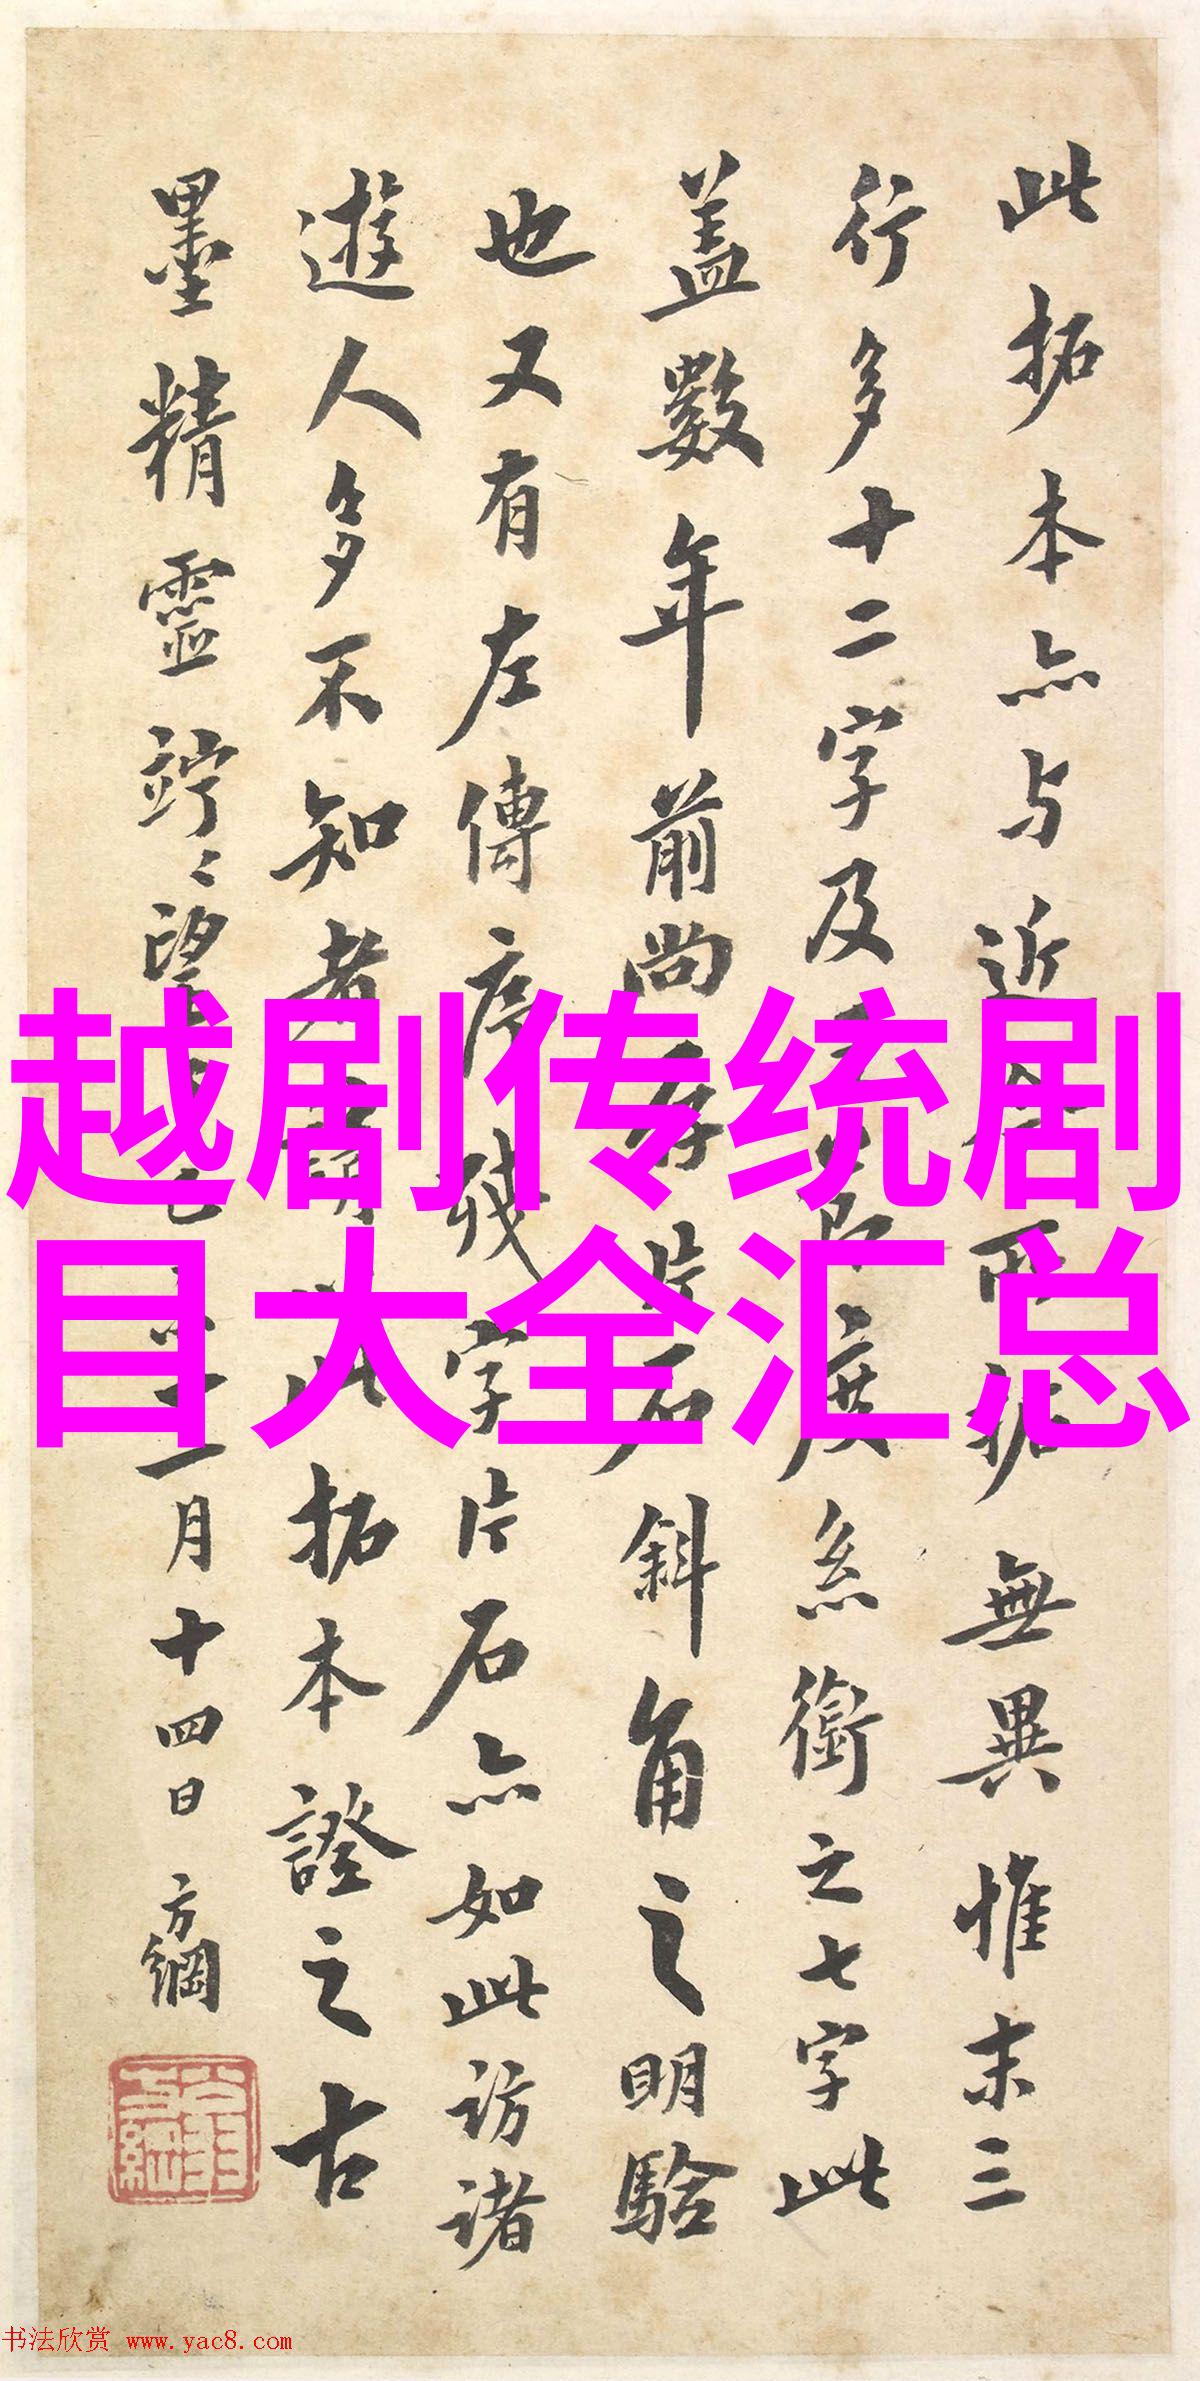 越剧传统剧
目大全汇总
此拓本亦与近 所拓無異惟末三
行多十二字及 度系銜之七字此
蓋數年前尚存片石斜角之明驗
也又有左傳序殘字片石亦如此訪諸
遊人多不知者 此拓本證之古
墨精靈竚〻望 十一月十四日 方綱
书法欣赏 www.yac8.com